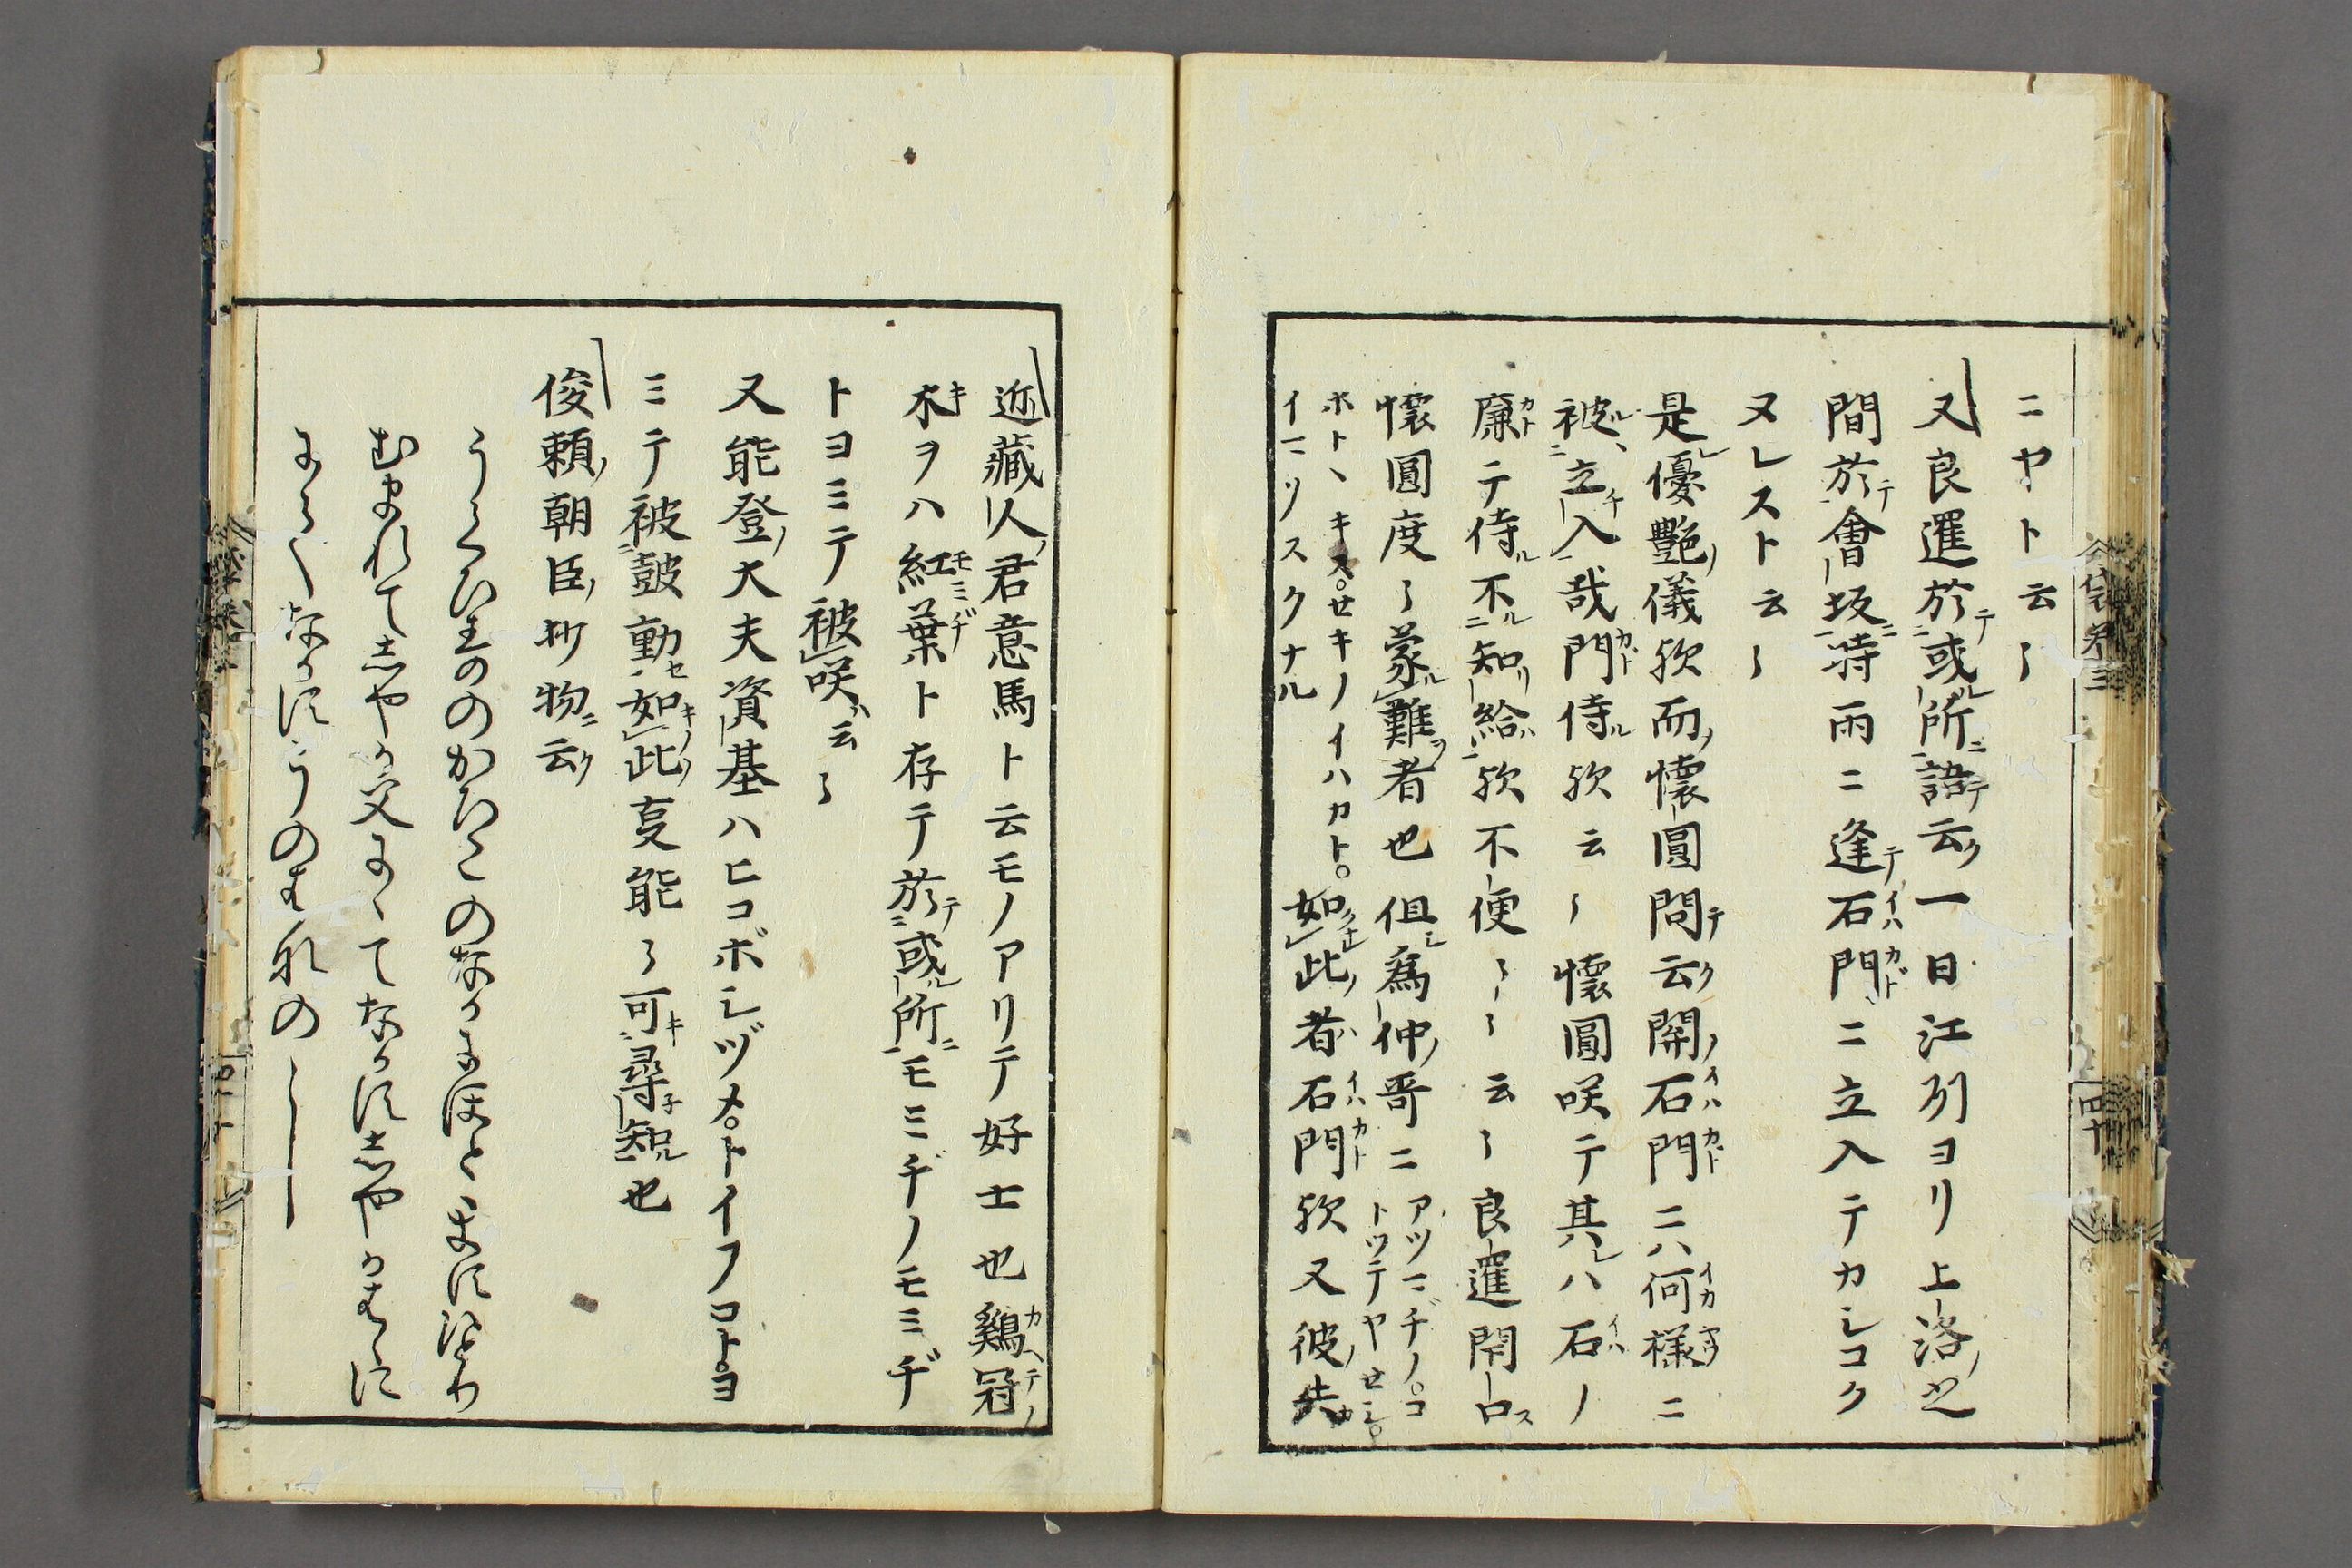 ニヤト云〻
又良暹於或所語云一日江州ヨリ上洛之
間於會坂時雨ニ逢石門ニ立入テカシコク
ヌレスト云〻
是優艶儀欤而懐圓問云関石門ニハ何様ニ
被立入哉門侍欤云〻懐圓咲テ其ハ石ノ
廉テ侍不知給欤不便〻〻云〻良暹閇口
懐圓度〻蒙難者也但為仲哥ニアツマヂノコ
トツテヤセシ
ホトヽキスセキノイハカト
イマソスクナル
如此者石門欤又彼失
近藏人君意馬ト云モノアリテ好士也鷄冠
木ヲハ紅葉ト存テ於或所モミヂノモミヂ
トヨミテ被咲云〻
又能登大夫資基ハヒコボシヅメトイフコトヨ
ミテ被鼓動如此叓能〻可尋知也
俊頼朝臣抄物云
うくひすのかひこのなかのほとゝきすひとり
むまれてしやか父にゝてなかすしやかはゝに